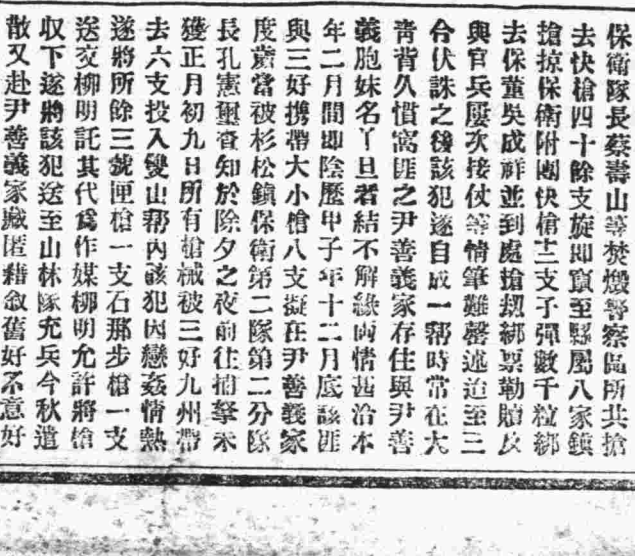 保衛隊長蔡壽山等焚燬警察區所共搶
去快槍四十餘支旋即竄至縣屬八家鎮
搶掠保衛附團快槍十二支子彈數千粒綁
去保董吳成祥並到處搶刼綁票勒贖及
與官兵屢次接仗等情筆難罄述迨至三
合伏誅之後該犯遂自成一幫時常在大
青背久慣窩匪之尹善義家存住與尹善
義胞妹名丫旦者結不解緣両情甚洽本
年二月間即陰歷甲子年十二月底該匪
與三好携帶大小槍八支擬在尹善義家
度歲當被杉松鎮保衛第二隊第二分隊
長孔憲璽查知於除夕之夜前往捕拏未
獲正月初九日所有槍械被三好九州帶
去六支投入雙山幫內該犯因戀姦情熱
遂將所餘三號匣槍一支石那步槍一支
送交柳明託其代爲作媒柳明允許將槍
収下遂將該犯送至山林隊充兵今秋遣
散又赴尹善義家藏匿藉敘舊好不意好